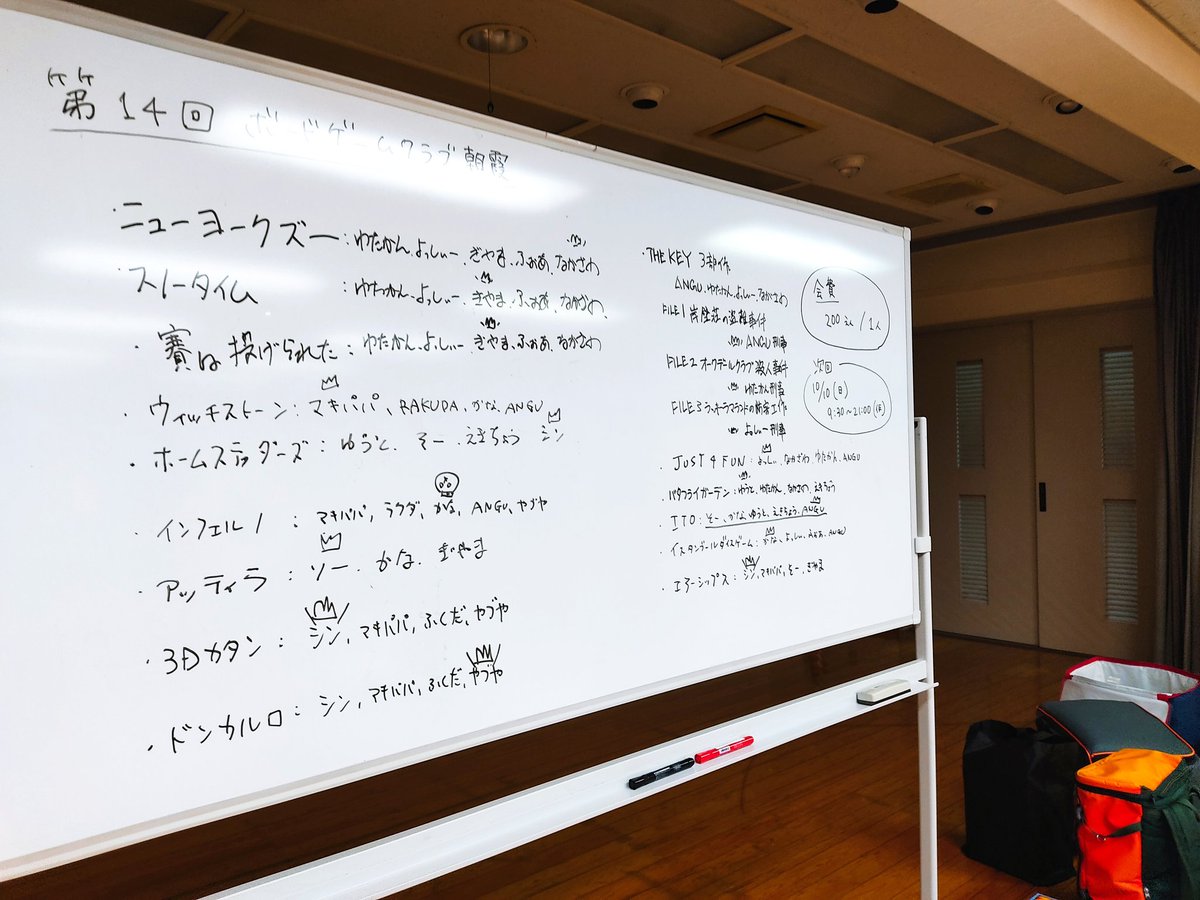 第14回 ボードゲームクラブ朝霞
・ニューヨークズー:ゆたかん、よっしぃー、ぎやま、ふぉあ、なかざわ
ストータイム:ゆたかん、よっしぃー、ぎやま、ふぉあ、なかざわ
・賽は投げられた:ゆたかん、よっしぃー、ぎやま、ふぉあ、なかざわ
・ウィッチストーン:マキパパ, RAKUDA, かな, ANGU
・ホームステッダーズ:ゆうと、そー、えきちょう シン
・インフェルノ:マキパパ, ラクダ, かな, ANGU, やブや
・アッティラ:ソー、かな、ぎやま
・3Dカタン:シン, マキパパ, ふくだ, ヤブや
・ドンカルロ:シン, マキパパ, ふくだ, やブや
・THE KEY 3部作
ANGU、ゆたかん、よっしぃー、なかざわ
FILE 1 岸壁荘の盗難事件
ANGU 刑事
FILE 2 オークデールクラブ殺人事件
ゆたかん刑事
FILE 3 ラッキーラマランドの妨害工作
よっしぃー刑事
・JUST 4 FUN:よっしぃ、なかざわ、ゆたかん、ANGU
・バタフライガーデン:ゆうと、ゆたかん、なかざわ、えきちょう
・ITO:そー、かな、ゆうと、えきちょう、ANGU
・イスタンブールダイスゲーム:かな、よっしぃ、ふぉあ、ANGU
・エアーシップス:シン, マキパパ, そー、ぎやま
会費
200えん/1人
次回
10/10(日)
9:30~21:00(仮)